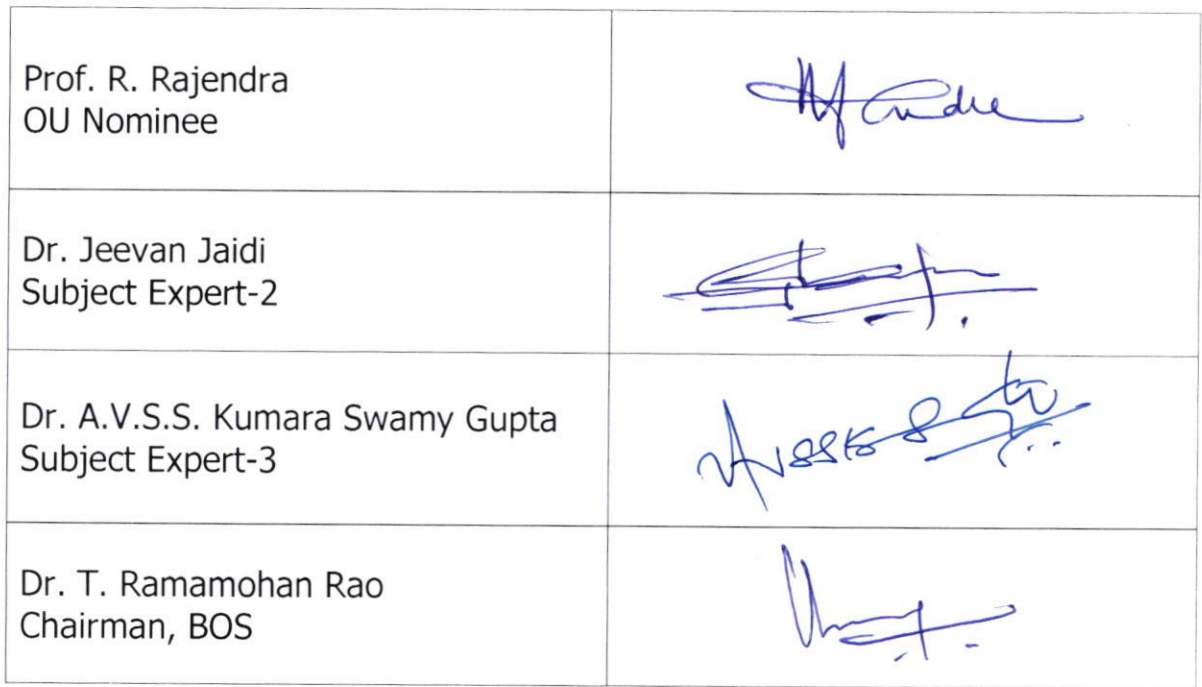 Prof. R. Rajendra
OU Nominee
Dr. Jeevan Jaidi
Subject Expert-2
Dr. A.V.S.S. Kumara Swamy Gupta
Subject Expert-3
Dr. T. Ramamohan Rao
Chairman, BOS